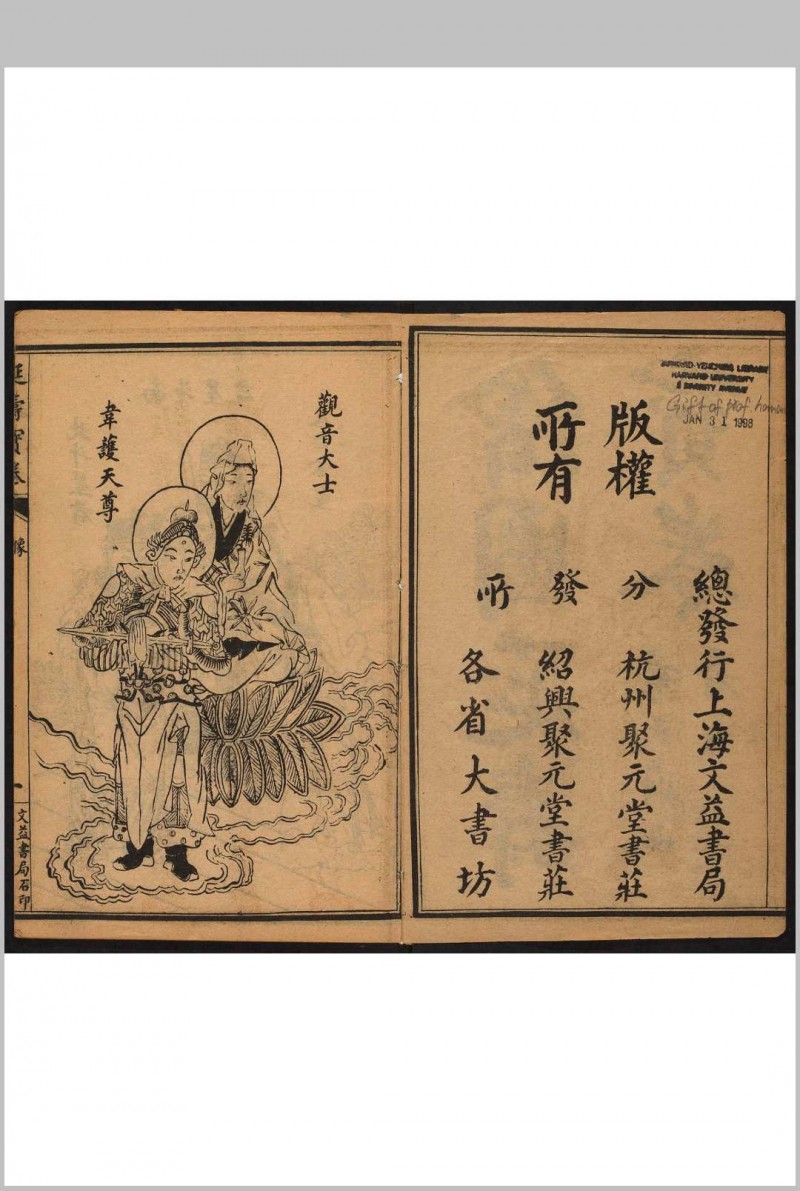 HARVARD-YENCHING LIBRARY
HARVARD UNIVERSITY
2 DIVINITY AVENUE
Gift of Prof. hanan
JAN 31 1998
版權
所有
總發行上海文益書局
分 杭州聚元堂書莊
發 紹興聚元堂書莊
所 各省大書坊
觀音大士
韋護天尊
延壽寶卷
像
一
文益書局石印